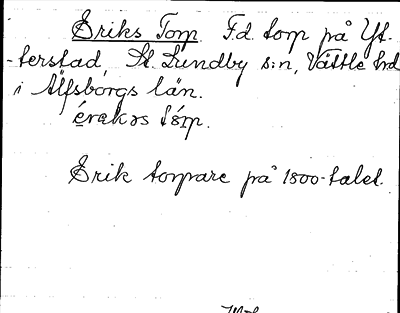 Eriks Torp. F.d. torp på Yt-
terstad, St. Lundby s:n, Vättle hrd
i Älfsborgs län.
érakəs tórp.
Erik torpare på 1800-talet.